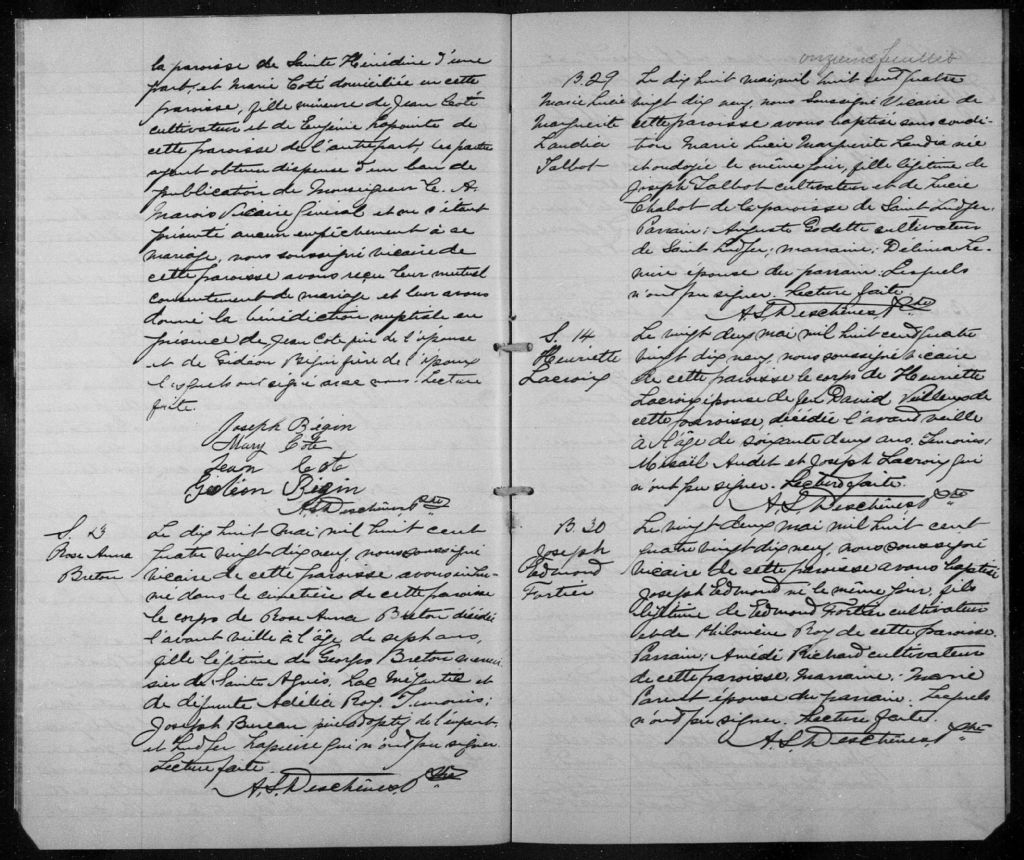 la paroisse de Sainte Hénédine d'une
part, et Marie Coté domiciliée en cette
paroisse, fille mineure de Jean Coté
cultivateur et de Eugénie Lapointe de
cette paroisse de l'autre part, Les parties
ayant obtenu dispense d'un ban de
publication de Monseigneur C. A.
Marois Vicaire Général et on s'étant
présenté aucun empêchement à ce
mariage, nous soussigné vicaire de
cette paroisse avons reçu leur mutuel
consentement de mariage et leur avons
donné la bénédiction nuptiale en
présence de Jean Coté père de l'épouse
et de Gédéon Bégin frère de l'époux
lesquels ont signé avec nous. Lecture
faite.
Joseph Bégin
Mary Coté
Jean Coté
Gédéon Bégin
A. S. Deschênes Ptre
S. 13
Rose Anna
Breton
Le dix huit mai mil huit cent
quatre vingt dix neuf, nous soussigné
vicaire de cette paroisse avons inhu-
mé dans le cimetière de cette paroisse
le corps de Rose Anna Breton décédée
l'avant veille à l'âge de sept ans,
fille légitime de Georges Breton menui-
sier de Sainte Agnès, Lac Mégantic et
de défunte Adélia Roy. Témoins;
Joseph Bureau père adoptif de l'enfant
et Ludger Lapierre qui n'ont pu signer.
Lecture faite.
A. S. Deschênes Ptre
onzième feuillet
B. 29
Marie Lucie
Marguerite
Landia
Talbot
Le dix huit mai mil huit cent quatre
vingt dix neuf, nous soussigné Vicaire de
cette paroisse avons baptisé sous condi-
tion Marie Lucie Marguerite Landia née
et ondoyée le même jour, fille légitime de
Joseph Talbot cultivateur et de Lucie
Chabot de la paroisse de Saint Ludger.
Parrain; Auguste Godette cultivateur
de Saint Ludger, marraine; Délina Le-
mire épouse du parrain. Lesquels
n'ont pu signer. Lecture faite.
A. S. Deschênes Ptre
S. 14
Henriette
Lacroix
Le vingt deux mai mil huit cent quatre
vingt dix neuf, nous soussigné vicaire
de cette paroisse le corps de Henriette
Lacroix épouse de Jean David Veilleux de
cette paroisse, décédée l'avant veille
à l'âge de soixante deux ans. Témoins;
Misaël Audet et Joseph Lacroix qui
n'ont pu signer. Lecture faite.
A. S. Deschênes Ptre
B 30
Joseph
Edmond
Fortier
Le vingt deux mai mil huit cent
quatre vingt dix neuf, nous soussigné
vicaire de cette paroisse avons baptisé
Joseph Edmond né le même jour, fils
légitime de Edmond Fortier cultivateur
et de Philomène Roy de cette paroisse.
Parrain; Amédé Richard cultivateur
de cette paroisse; marraine; Marie
Parent épouse du parrain. Lesquels
n'ont pu signer. Lecture faite.
A. S. Deschênes Ptre